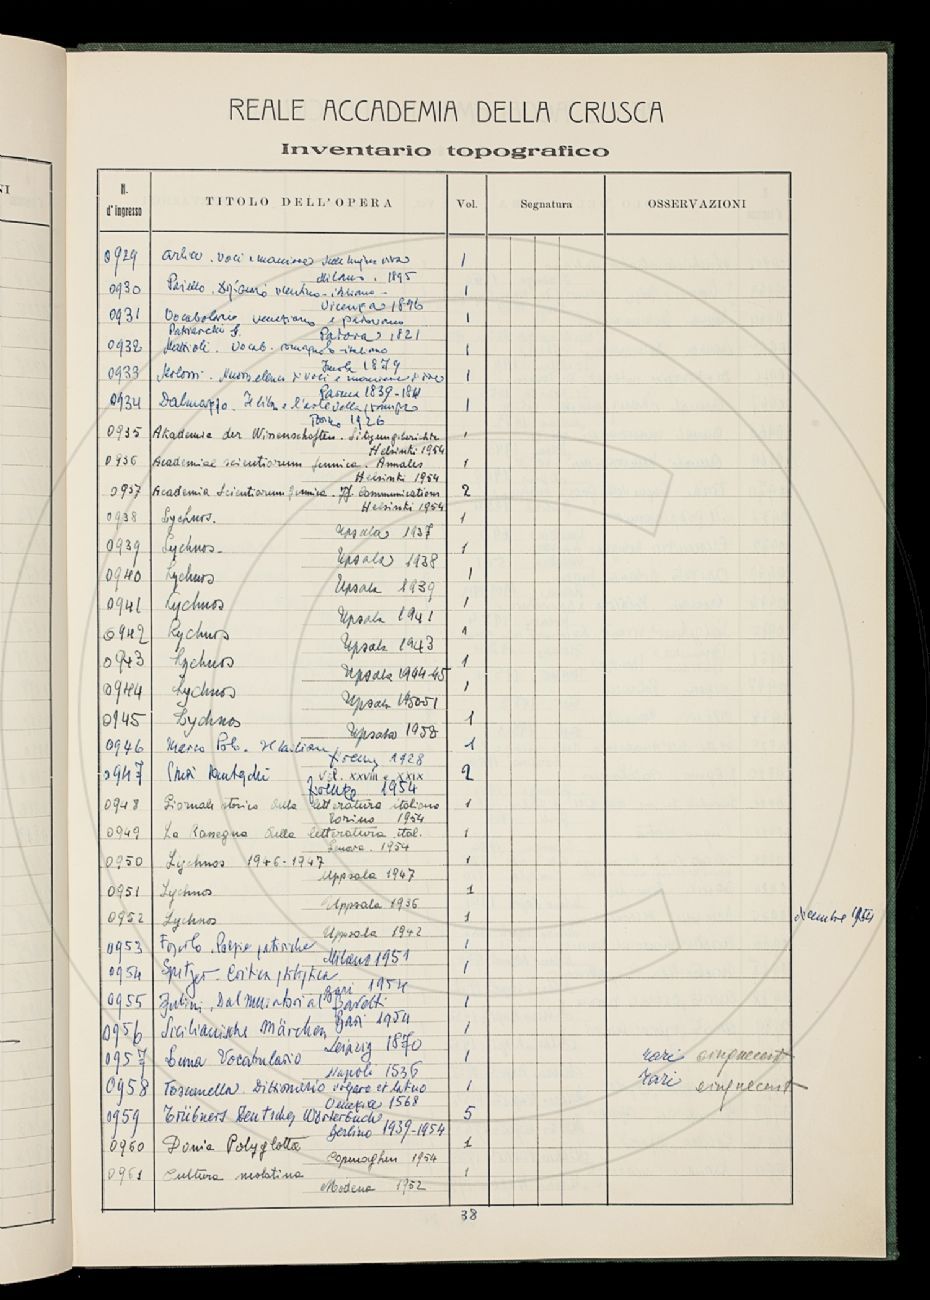 NI
REALE ACCADEMIA DELLA CRUSCA
Inventario topografico
N. d'ingresso TITOLO DELL'OPERA Vol. Segnatura OSSERVAZIONI
0929 voci e maniere 1
Milano. 1895
0930 1
Vicenza 1896
0931 Vocabolario veneziano e padovano 1
Patriarchi G. Padova 1821
0932 Mattioli. Vocab. romagnolo-italiano 1
Imola 1879
0933 voci e maniere 1
Parma 1839-1841
0934 Dalmazzo. Il libro e l'arte della stampa 1
Torino 1926
0935 Akademia der Wissenschaften. Sitzungsberichte 1
Helsinki 1954
0936 Academiae scientiarum fennica. Annales 1
Helsinki 1954
0937 Academia Scientiarum fennica. FF. Communications 2
Helsinki 1954
0938 Lychnos. 1
Upsala 1937
0939 Lychnos. 1
Upsala 1938
0940 Lychnos 1
Upsala 1939
0941 Lychnos 1
Upsala 1941
0942 Lychnos 1
Upsala 1943
0943 Lychnos 1
Upsala 1944-45
0944 Lychnos 1
Upsala 195051
0945 Lychnos 1
Upsala 1952
0946 Marco Polo. Il Milione 1
Firenze 1928
0947 Studi danteschi 2
Vol. XXVIII e XXIX
Firenze 1954
0948 Giornale storico della letteratura italiana 1
Torino 1954
0949 La Rassegna della letteratura ital. 1
Genova. 1954
0950 Lychnos 1946-1947 1
Uppsala 1947
0951 Lychnos 1
Uppsala 1936
0952 Lychnos 1 dicembre 1954
Uppsala 1942
0953 Foscolo. Poesie 1
Milano 1951
0954 Spitzer. Critica stilistica 1
Bari 1954
0955 Fubini. Dal Muratori al Baretti 1
Bari 1954
0956 Sicilianische Märchen 1
Leipzig 1870
0957 Luna Vocabulario 1 rari cinquecent
Napoli 1536
0958 Toscanella. Dittionario volgare et latino 1 rari cinquecent
Venezia 1568
0959 Trübners Deutsches Wörterbuch 5
Berlino 1939-1954
0960 Dania Polyglotta 1
Copenaghen 1954
0961 Cultura neolatina 1
Modena 1952
38